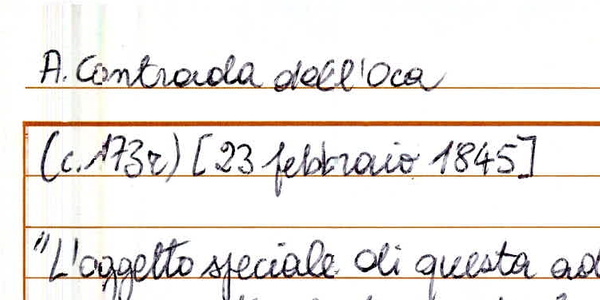 A. Contrada dell'Oca
(c. 173r) [23 febbraio 1845]
"L'oggetto speciale di questa